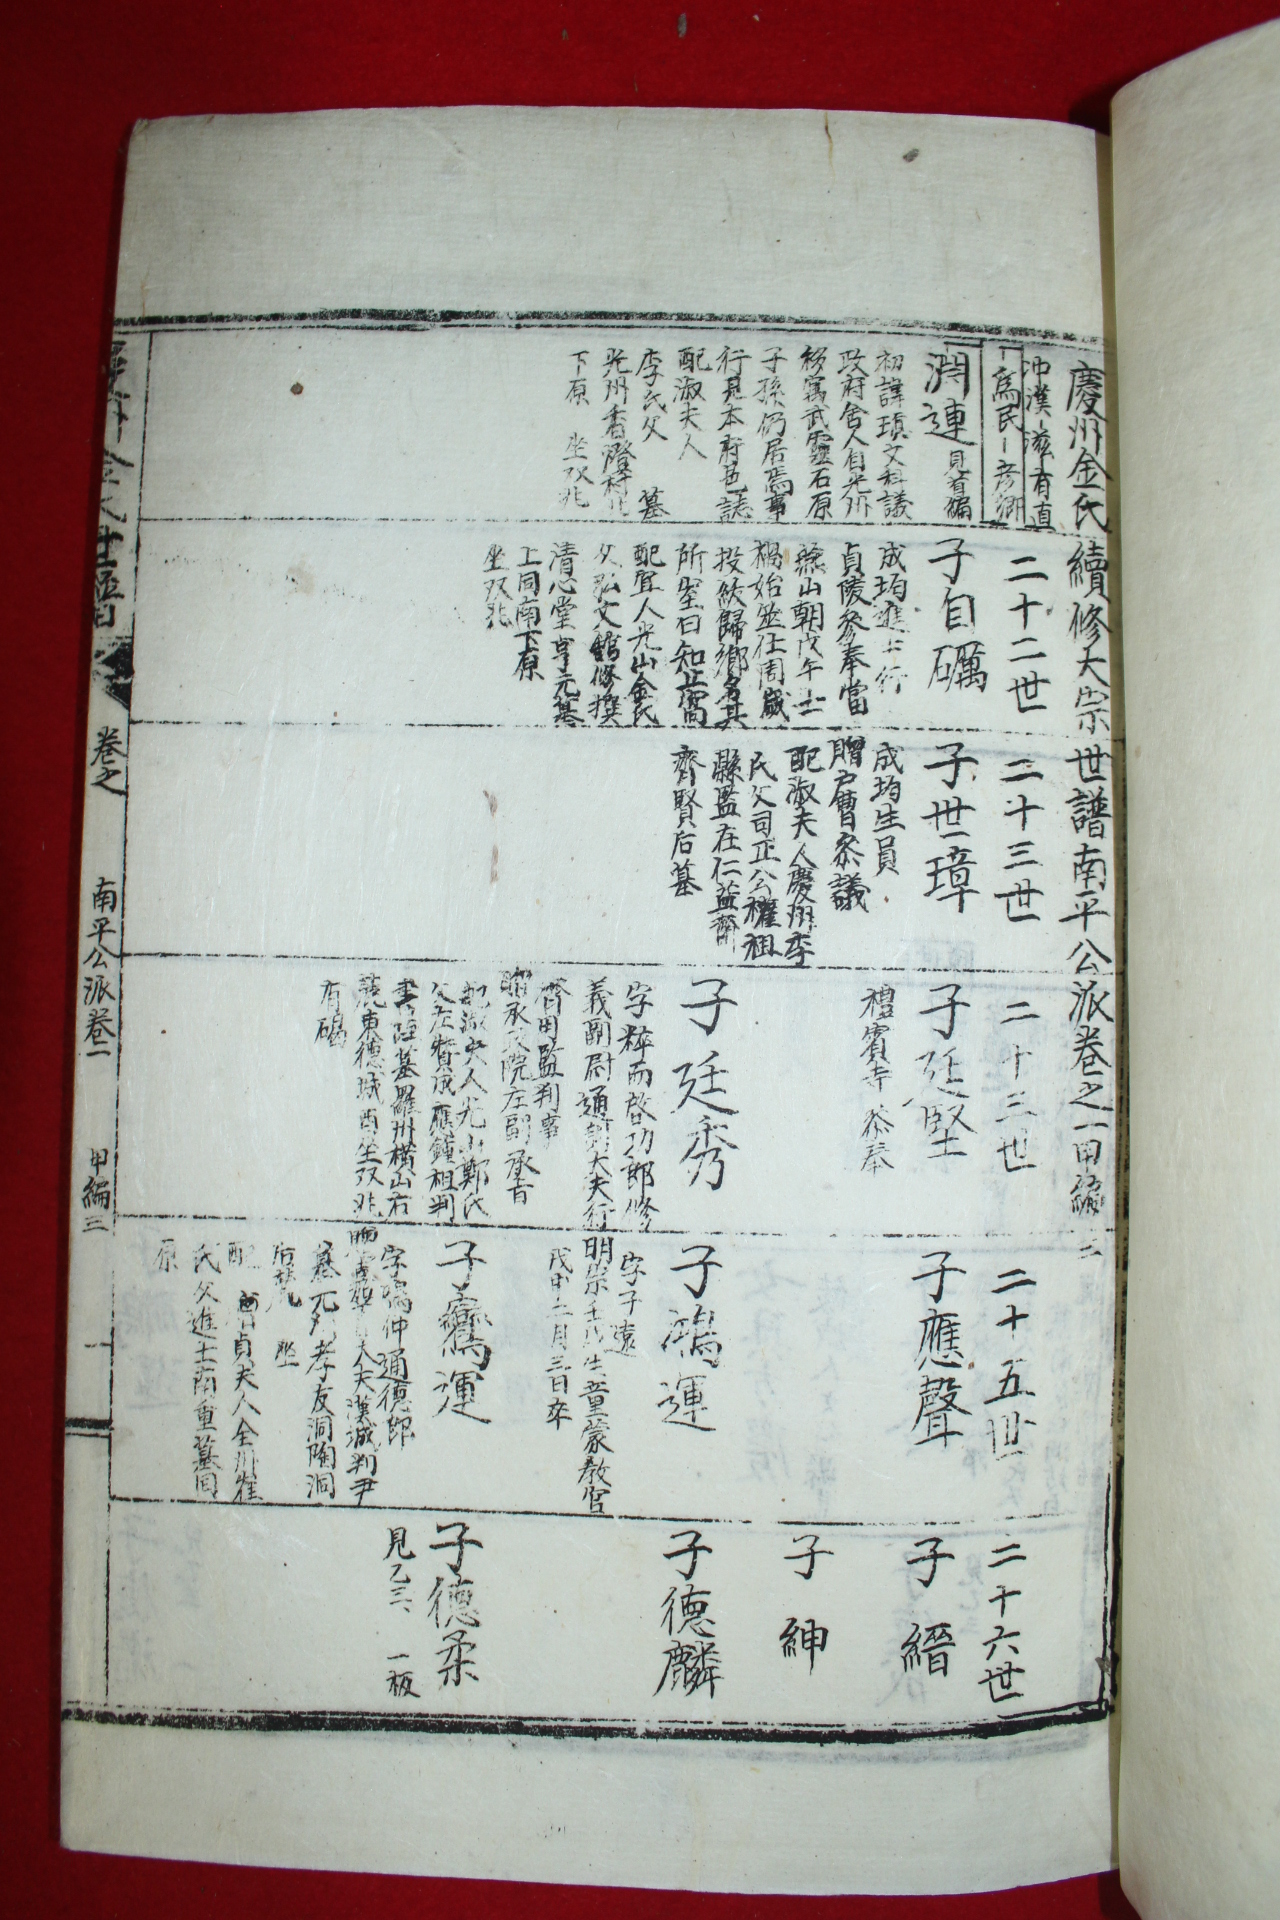 慶州金氏續修大宗世譜南平公派卷之一甲編
冲漢－滋－有直
－爲民－彦鄉
潤連見首編
初諱瑱文科議
政府舍人自光州
移寓武靈石原
子孫仍居焉事
行見本府邑誌
配淑夫人
李氏父 墓
光州香澄村
下原 坐双兆
二十二世
子自礪
成均進士行
貞陵參奉當
燕山朝戊午士
禍始並仕周歲
投紱歸鄉名其
所室曰知止窩
配宜人光山金氏
父弘文館修撰
清心堂亨元墓
上同南下原
坐双兆
二十三世
子世璋
成均生員
贈戶曹參議
配淑夫人慶州李
氏父司正公權祖
縣監在仁益齋
齊賢后墓
二十三世
子廷堅
禮賓寺參奉
子廷秀
字粹而啓功郎修
義副尉通訓大夫行
濟用監判事
贈承政院左副承旨
配淑夫人光山鄭氏
父左贊成應鍾祖判
書 墓羅州橫山右
麓東德城酉坐双兆
有碣
二十五世
子應聲
子鴻運
字子遠
明宗壬戌生童蒙教官
戊申二月三日卒
子鶱運
字 仲通德郎
大夫漢城判尹
墓 孝友洞陶洞
后麓 坐
配 貞夫人全州崔
氏父進士南重墓同
原
二十六世
子縉
子紳
子德麟
子德柔
見乙三 一板
慶州金氏世譜
卷之
南平公派卷一
甲編三
一